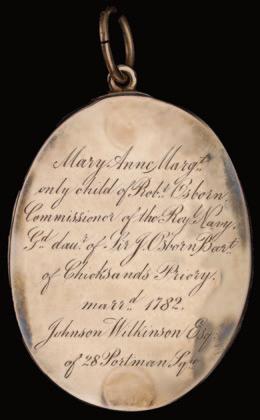 Mary Anne Margt.
only child of Robt. Osborn.
Commissioner of the Royl. Navy.
Gd. daur. of Sir J. Osborn Bart.
of Chicksands Priory.
marrd. 1782.
Johnson Wilkinson Esqr.
of 28 Portman Sqre.